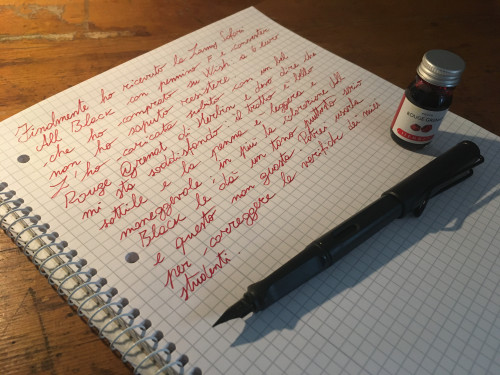 Finalmente ho ricevuto la Lamy Safari
All Black con pennino F e converter
che ho comprato su Wish a 6 euro
non ho saputo resistere.
L'ho caricata subito con un bel
Rouge Grenat di Herbin e devo dire che
mi sta soddisfando il tratto è bello
sottile e la penna è leggera e
maneggevole. in più la colorazione All
Black le dà un tono piuttosto serio
e questo non guasta. Potrei usarla
per correggere le verifiche dei miei
studenti.
ROUGE GRENAT